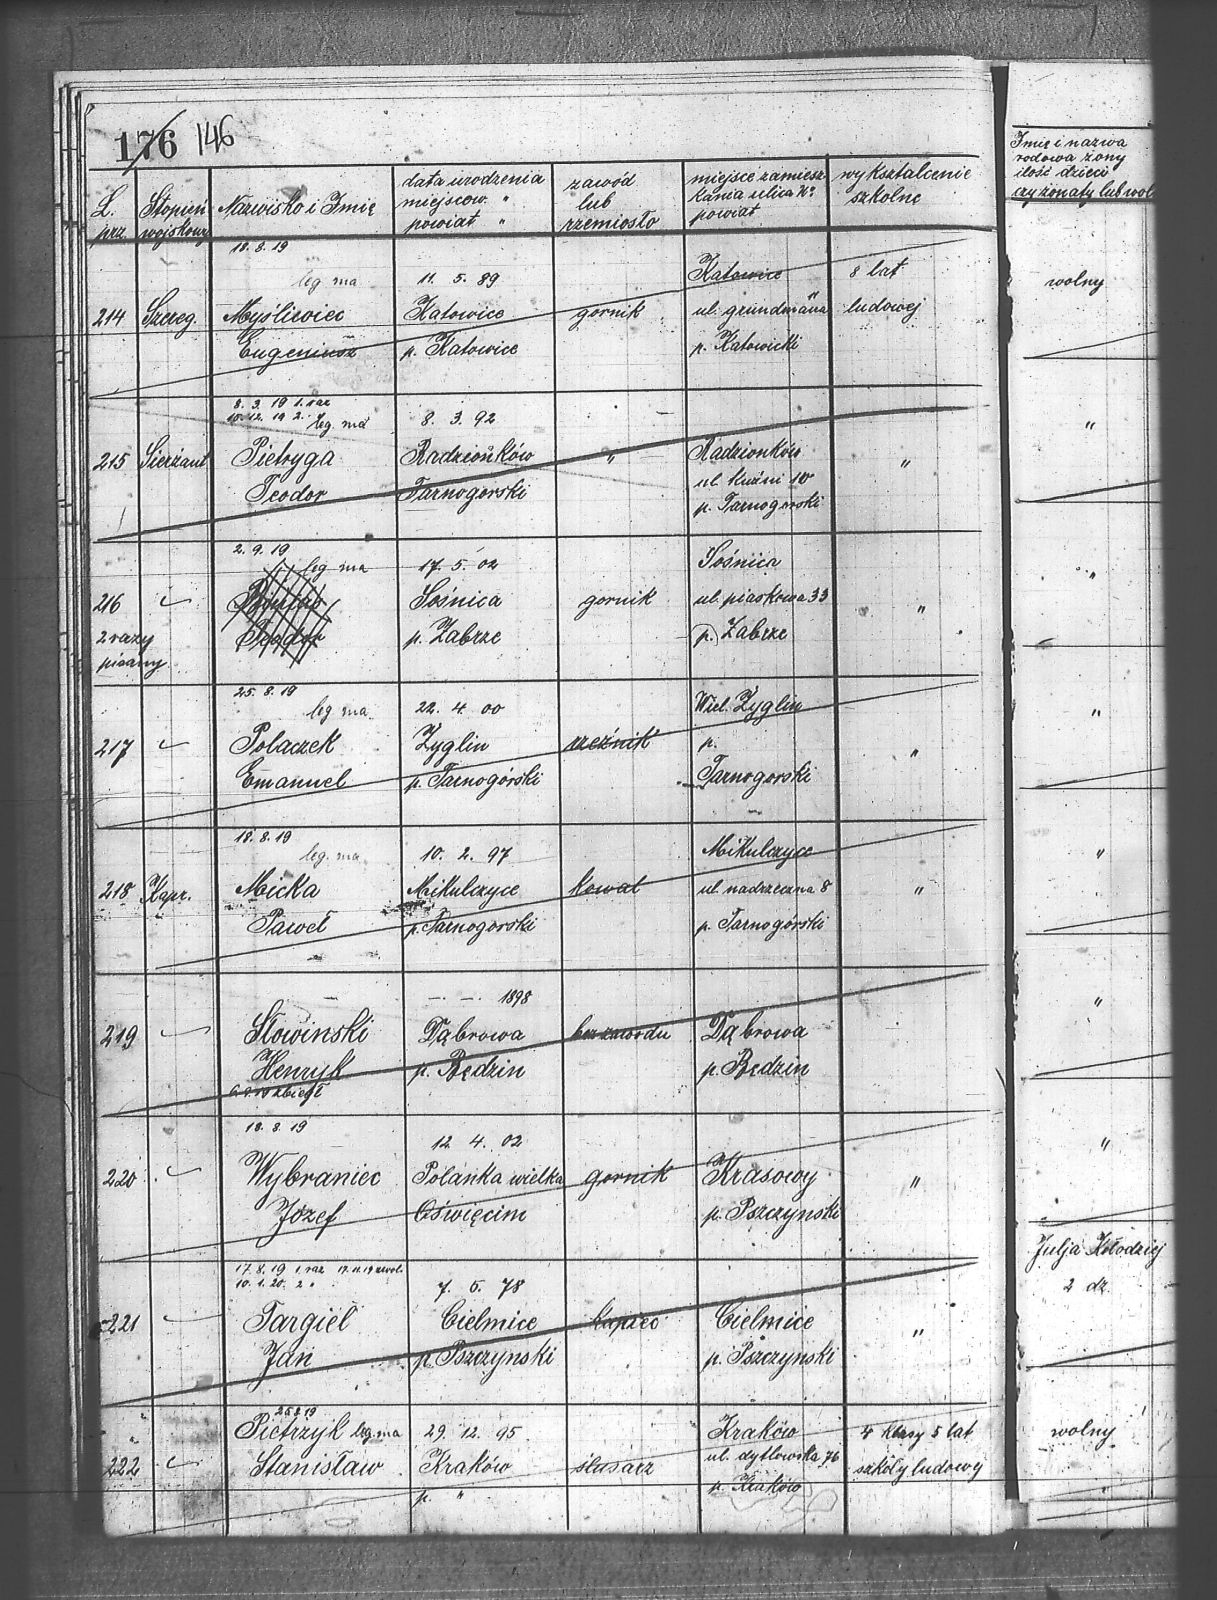 176 146
L. prz.
Stopień wojskowy
Nazwisko i Imię
data urodzenia
miejscow. "
powiat "
zawód
lub
rzemiosło
miejsce zamiesz-
kania ulica No
powiat
wykształcenie
szkolne
Imię i nazwa
rodowa żony
ilość dzieci
czy żonaty lub wol
18. 8. 19
leg ma 11. 5. 89 Katowice 8 lat wolny
214 Szereg. Myśliwiec Katowice gornik ul. grundmana ludowej
Eugeniusz p. Katowice p. Katowicki
8. 3. 19 1. raz
10. 12. 19 2. leg. ma 8. 3. 92
215 Sierżant Pietryga Radzionków " Radzionków " "
Teodor Tarnogorski ul. kuźni 10
p. Tarnogorski
2. 9. 19
leg ma 17. 5. 02 Sośnica "
216 Sośnica gornik ul. piaskowa 33 "
2 razy p. Zabrze p. Zabrze
pisany
25. 8. 19
leg ma 22. 4. 00 Wiel. Zyglin "
217 Polaczek Zyglin rzeźnik p. "
Emanuel p. Tarnogórski Tarnogorski
18. 8. 19
leg. ma 10. 2. 97 Mikulczyce "
218 Kapr. Micka Mikulczyce kowal ul. nadrzeczna 8 "
Paweł p. Tarnogorski p. Tarnogórski
— — — 1898
219 Słowinski Dąbrowa bez zawodu Dąbrowa "
Henryk p. Będzin p. Będzin
zbiegł
18. 8. 19
12. 4. 02 "
220 Wybraniec Polanka wielka gornik Krasowy "
Józef Oświęcim p. Pszczynski
17. 8. 19 1. raz
10. 1. 20. 2 " 7. 5. 78 Julja Kołodziej
2 dz.
221 Targiel Cielmice Cielmice "
Jan p. Pszczynski p. Pszczynski
25 8 19
Pietrzyk leg. ma 29. 12. 95 Kraków 4 klasy 5 lat wolny
222 Stanisław Kraków ślusarz ul. dytlowska 76 szkoły ludowej
p. " p. Kraków